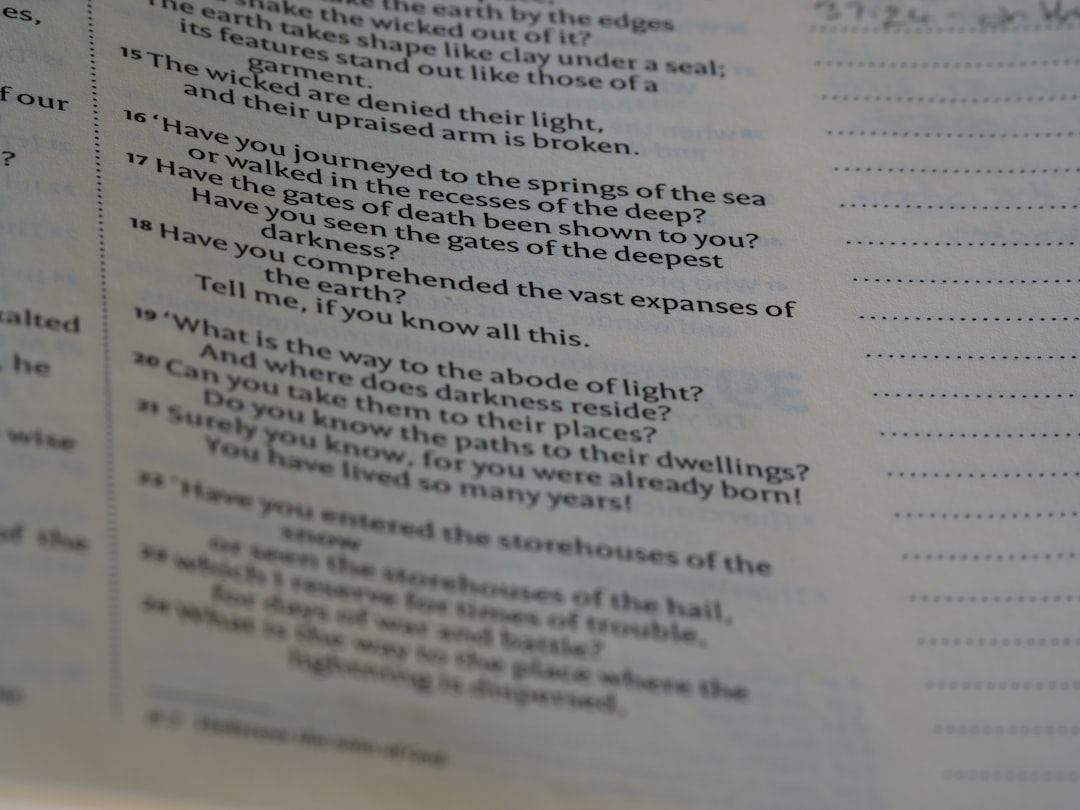 es,
f our
?
xalted
, he
wise
of the
the earth by the edges
shake the wicked out of it?
The earth takes shape like clay under a seal;
its features stand out like those of a
garment.
15 The wicked are denied their light,
and their upraised arm is broken.
16 ‘Have you journeyed to the springs of the sea
or walked in the recesses of the deep?
17 Have the gates of death been shown to you?
Have you seen the gates of the deepest
darkness?
18 Have you comprehended the vast expanses of
the earth?
Tell me, if you know all this.
19 ‘What is the way to the abode of light?
And where does darkness reside?
20 Can you take them to their places?
Do you know the paths to their dwellings?
21 Surely you know, for you were already born!
You have lived so many years!
22 ‘Have you entered the storehouses of the
snow
or seen the storehouses of the hail,
23 which I reserve for times of trouble,
for days of war and battle?
24 What is the way to the place where the
lightning is dispersed,
37:24 - oh